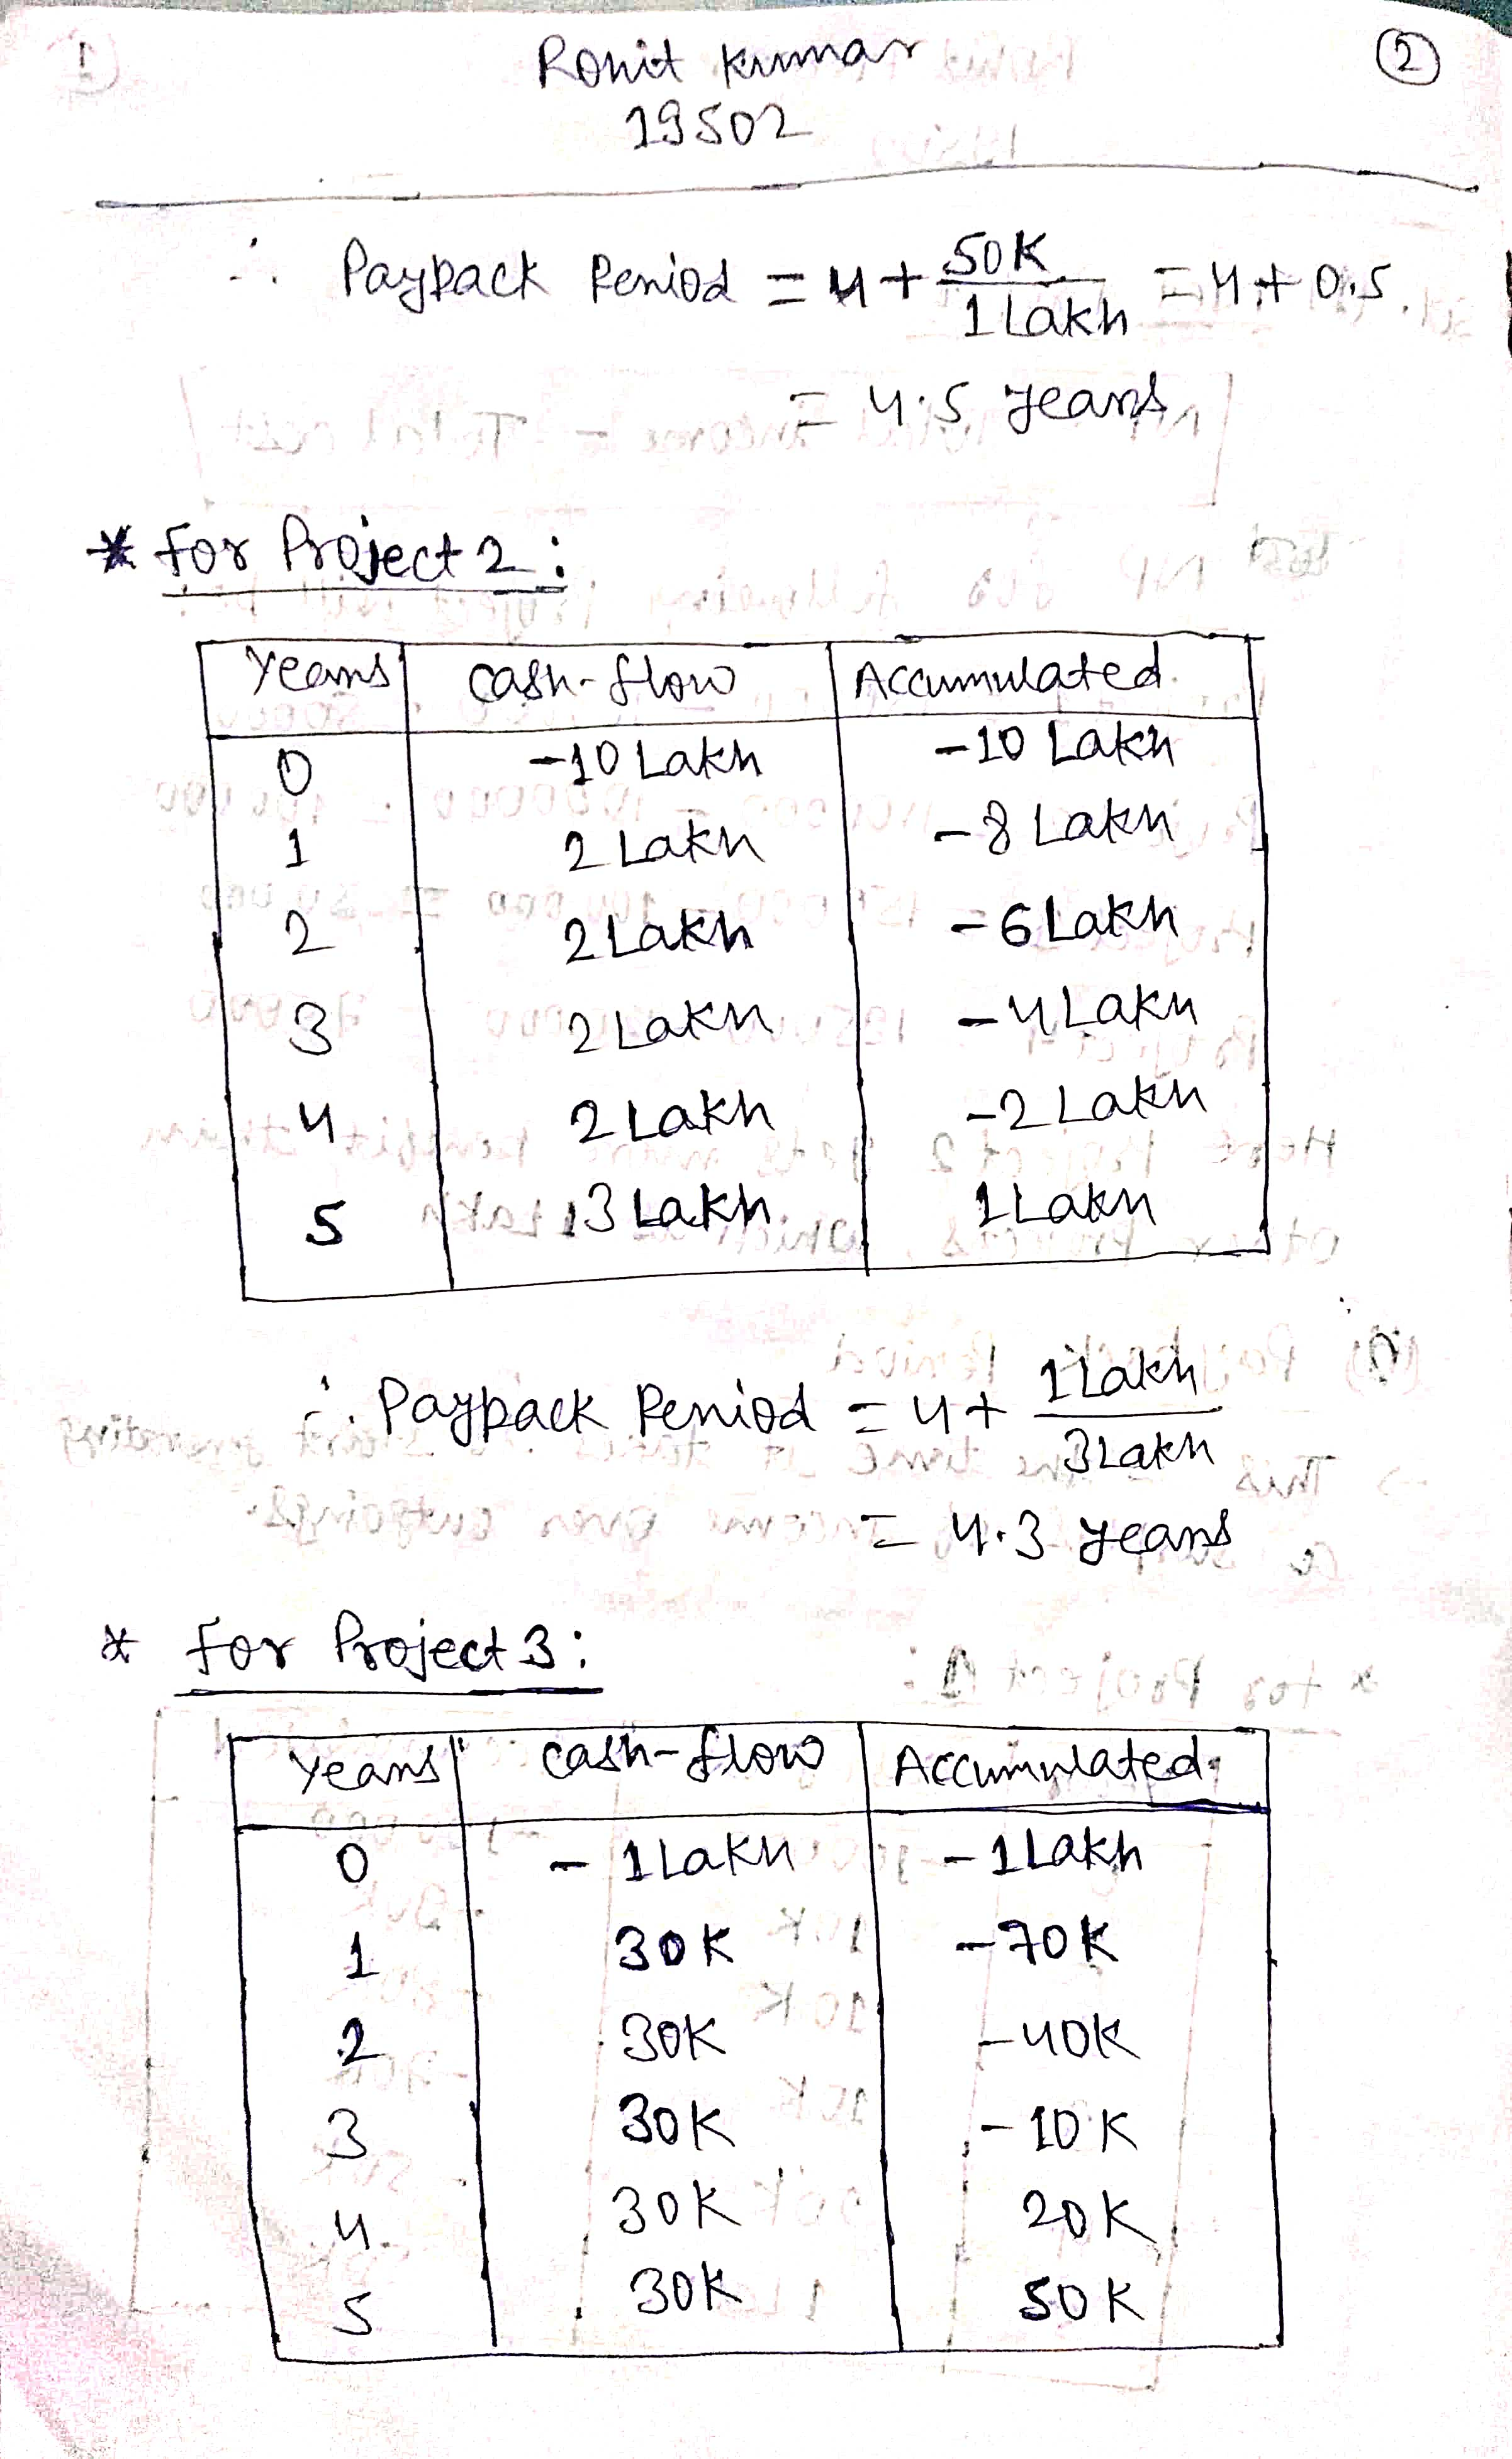 Ronit Kumar
②
19502
∴ Payback Period = 4 + 50K / 1 Lakh = 4 + 0.5
= 4.5 years
* For Project 2 :
Years | Cash-flow | Accumulated
0 | -10 Lakh | -10 Lakh
1 | 2 Lakh | -8 Lakh
2 | 2 Lakh | -6 Lakh
3 | 2 Lakh | -4 Lakh
4 | 2 Lakh | -2 Lakh
5 | 3 Lakh | 1 Lakh
∴ Payback Period = 4 + 1 Lakh / 3 Lakh
= 4.3 years
* For Project 3 :
Years | Cash-flow | Accumulated
0 | - 1 Lakh | - 1 Lakh
1 | 30K | -70K
2 | 30K | -40K
3 | 30K | -10K
4 | 30K | 20K
5 | 30K | 50K